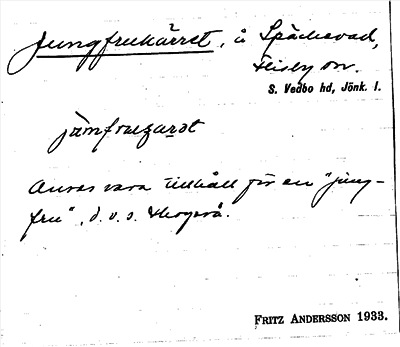 Jungfrukärret, å Späckavad,
Flisby sn.
S. Vedbo hd, Jönk. l.
Anses vara tillhåll för en "jung-
fru", d.v.s. skogsrå.
FRITZ ANDERSSON 1933.